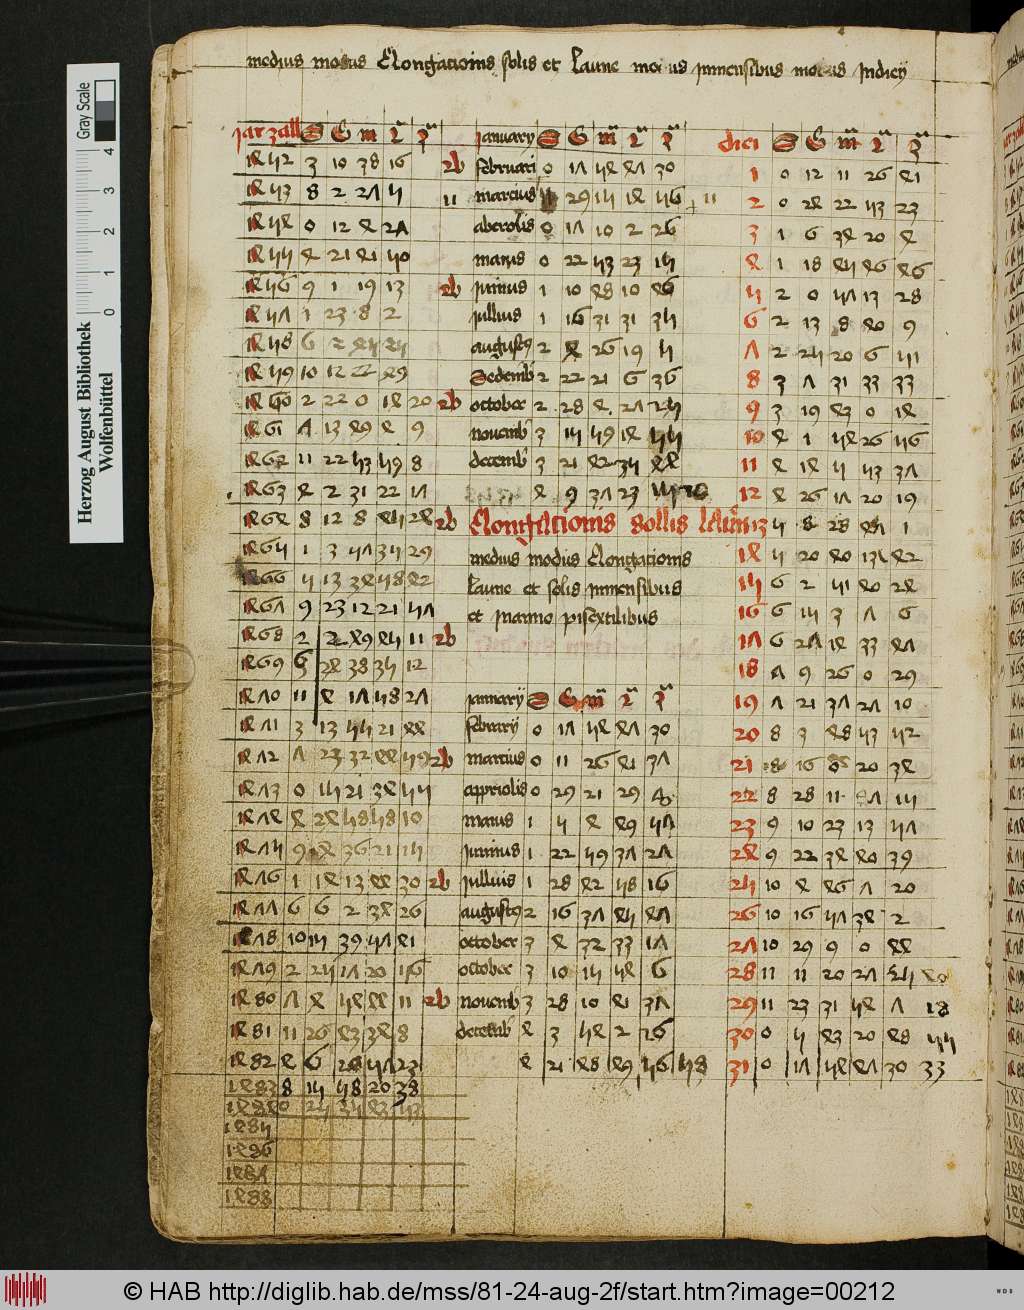 medius motus Elongationis solis et Lune motus inmensibus motus Indiey
jar zall S G m 2 3
1452 3 10 38 16 2b
1453 8 2 27 5 11
1454 0 12 4 27
1455 4 21 41 50
1456 9 1 19 13 2b
1457 1 23 8 2
1458 6 2
1459 10 12 22 49
1460 2 22 0 14 20 2b
1461 7 13 49 4 9
1462 11 22 53 59 8
1463 4 2 31 22 17
1464 8 12 8 45 24 2b
1465 1 3 57 35 29
1466 5 13 34 58 42
1467 9 23 12 21 57
1468 2 2 49 45 11 2b
1469 6 24 38 35 12
1470 11 4 17 58 27
1471 3 13 55 21 44
1472 7 23 32 44 59 2b
1473 0 15 21 34 55
1474 4 24 58 58 10
1475 9 4 36 21 25
1476 1 14 13 44 30 2b
1477 6 6 2 34 26
1478 10 15 39 57 41
1479 2 25 17 20 56
1480 7 4 54 44 11 2b
1481 11 26 43 34 8
1482 4 6 57 23
1483 8 15 58 20 38
1484 0 25 35 43 53
1485
1486
1487
1488
january S G m 2 3
februari 0 17 54 47 30
marcius 11 29 15 14 56 11
aberolis 0 17 10 2 26
maius 0 22 53 23 15
junius 1 10 48 10 46
jullius 1 16 31 31 35
augustus 2 4 26 19 5
Sedemb 2 22 21 6 36
october 2 28 4 27 25
novemb 3 15 59 14 55
decemb 3 21 42 35 44
4 9 37 23
Elongacionis sollis
medius modus Elongationis
laune et solis inmensibus
et inanno pisextilibus
januarij S G m 2 3
februarij 0 17 54 47 30
marcius 0 11 26 41 37
appriolis 0 29 21 29
maius 1 5 4 49 57
junius 1 22 59 37 27
jullius 1 28 42 58 16
augustus 2 16 37 45 47
october 3 4 32 33 17
october 3 10 15 54 6
novemb 3 28 10 41 37
4 3 54 2 26
4 21 48 49 56 58
diei S G m 2 3
1 0 12 11 26 41
2 0 24 22 53 23
3 1 6 34 20 4
4 1 18 45 46 46
5 2 0 57 13 28
6 2 13 8 40 9
7 2 25 20 6 51
8 3 7 31 33 33
9 3 19 43 0 14
10 4 1 54 26 56
11 4 14 5 53 37
12 4 26 17 20 19
13 5 8 28 47 1
14 5 20 40 13 42
15 6 2 51 40 24
16 6 15 3 7 6
17 6 27 14 33 47
18 7 9 26 0 29
19 7 21 37 27 10
20 8 3 48 53 52
21 8 16 0 20 34
22 8 28 11 47 15
23 9 10 23 13 57
24 9 22 34 40 39
25 10 4 46 7 20
26 10 16 57 34 2
27 10 29 9 0 44
28 11 11 20 27 25 40
29 11 23 31 54 7 18
30 0 5 43 20 48 55
31 0 17 54 47 30 33
Herzog August Bibliothek
Wolfenbüttel
Gray Scale
0 1 2 3 4
© HAB http://diglib.hab.de/mss/81-24-aug-2f/start.htm?image=00212